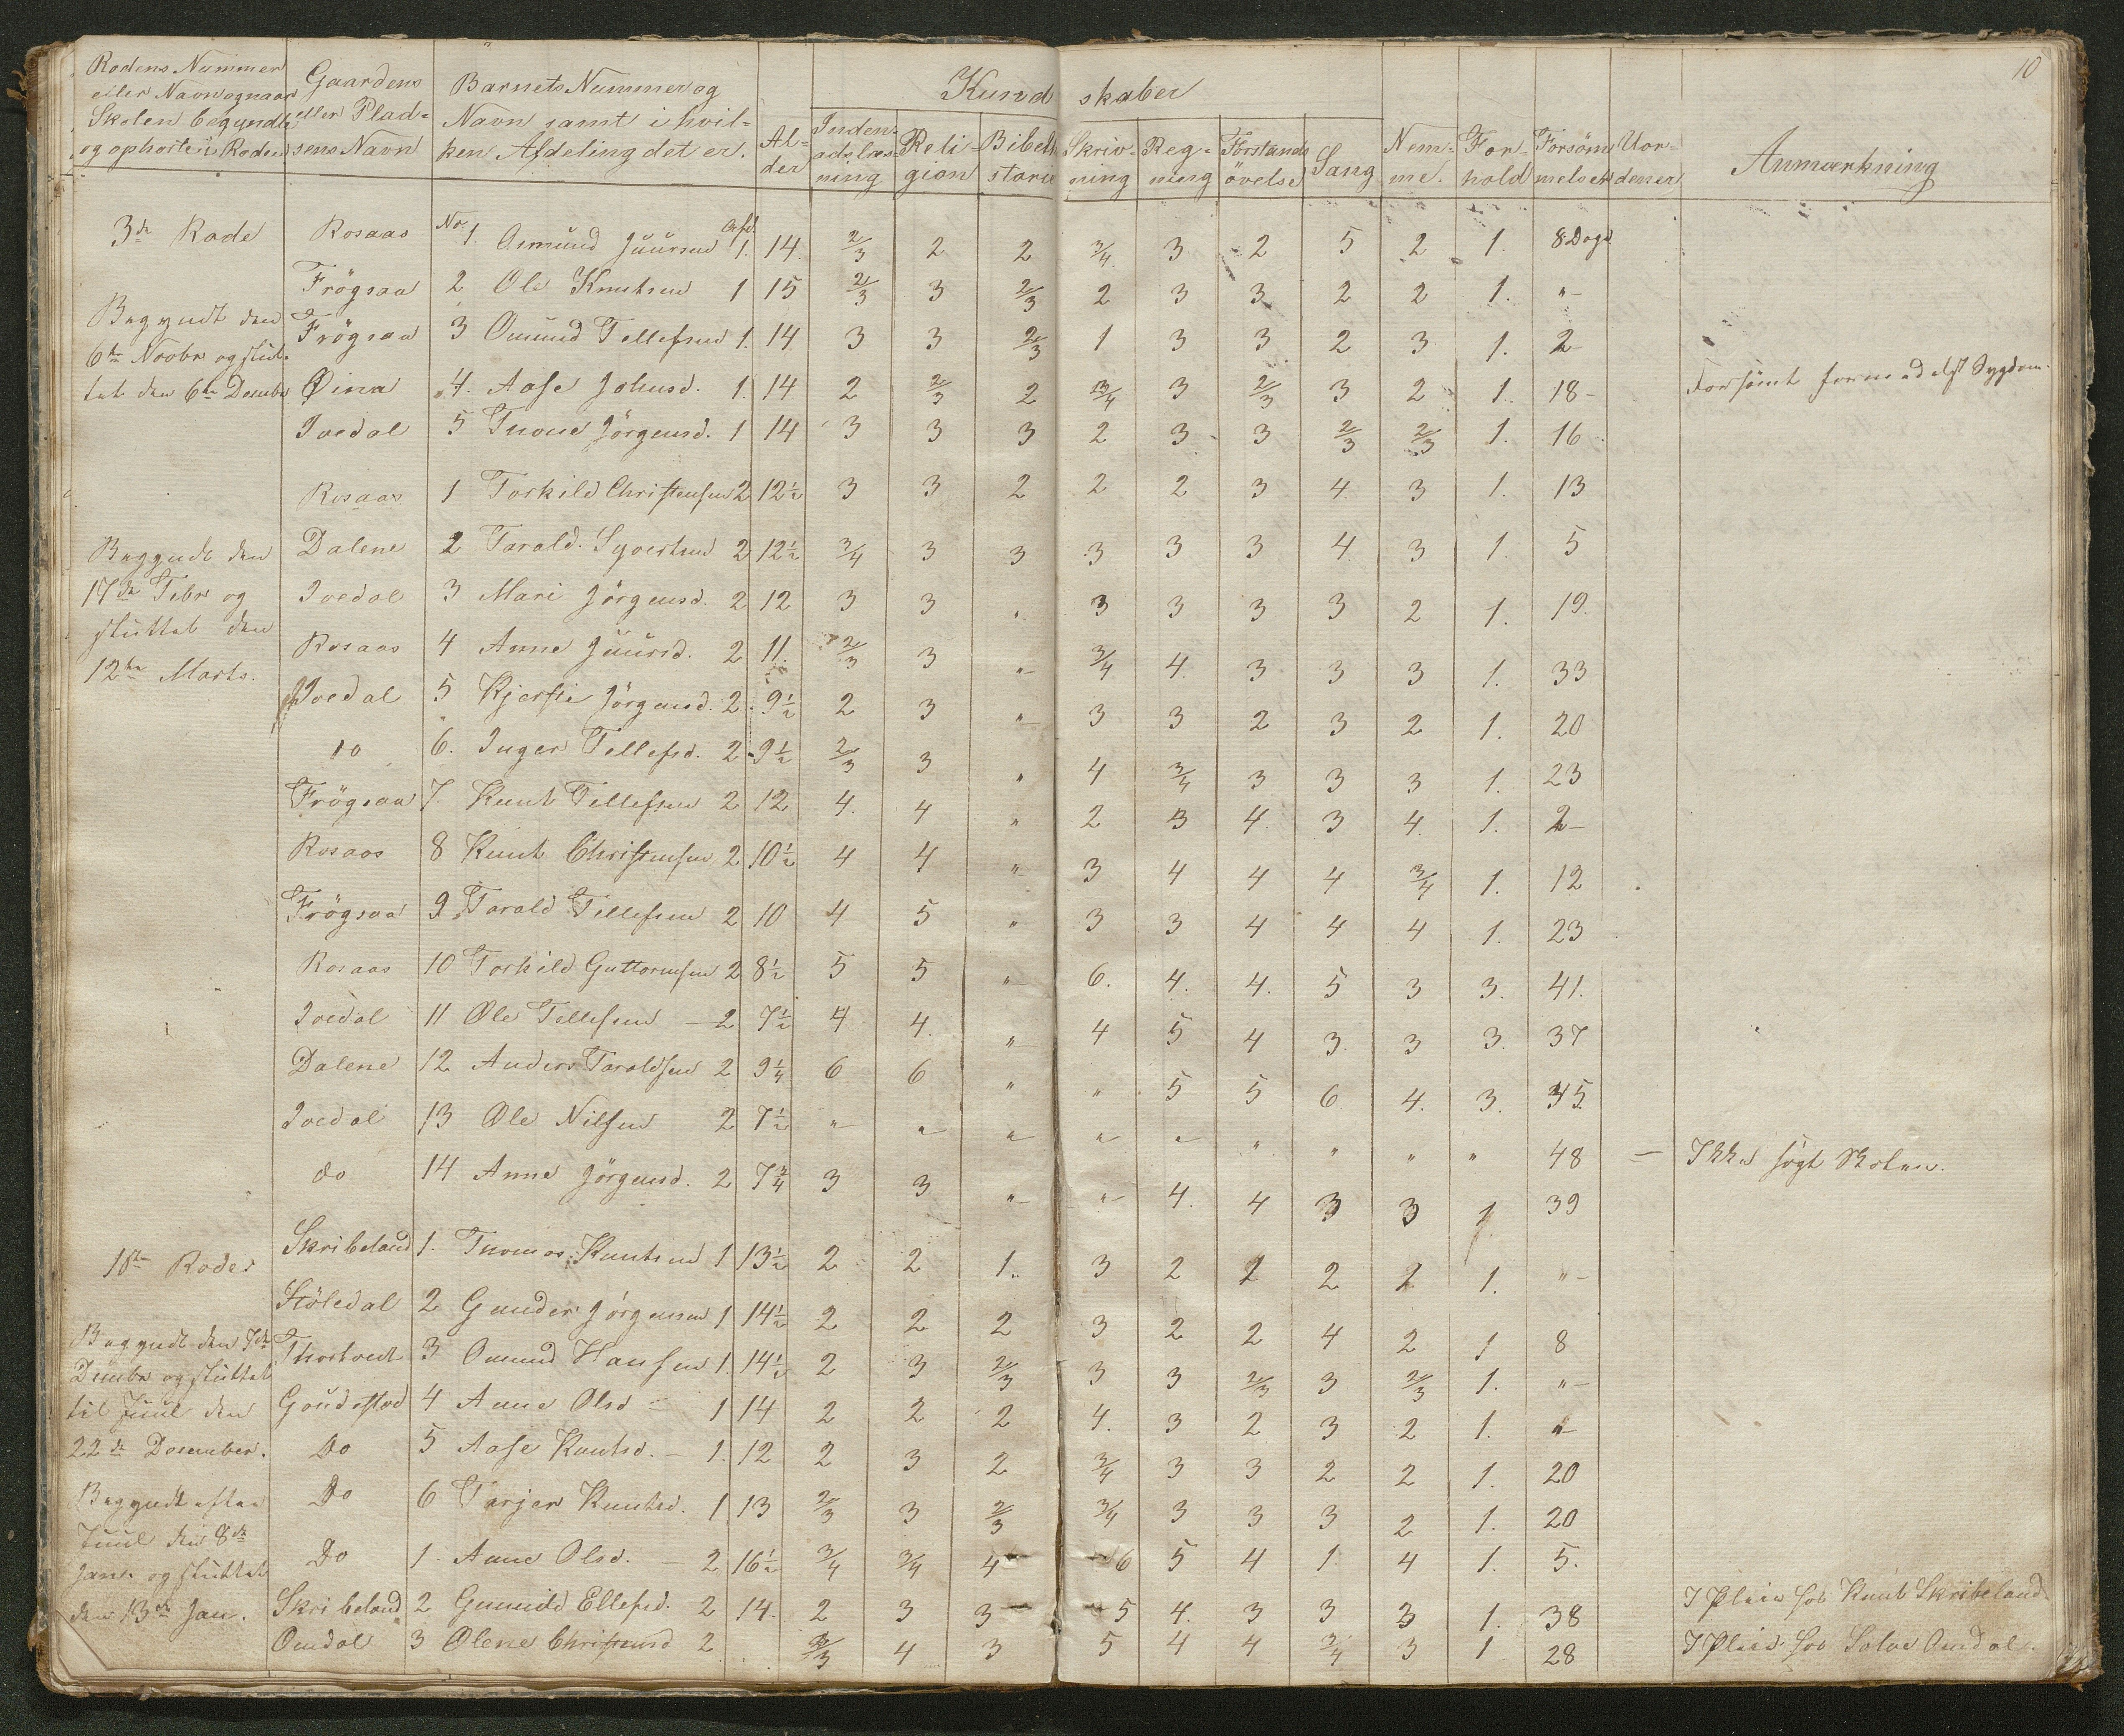 10
Rodens Nummer eller Navn og naar Skolen begyndte og ophørte i Roden | Gaardens eller Pladsens Navn | Barnets Nummer og Navn samt i hvilken Afdeling det er. | Alder | Kundskaber | Indenadslæsning | Religion | Bibelstorie | Skrivning | Regning | Forstandsövelse | Sang | Nemme. | Forhold | Forsömmelser | Anmærkning
3de Rode | Rosaas | No 1. Osmund Juursen | Afd. 1. | 14. | 2/3 | 2 | 2 | 3/4 | 3 | 2 | 5 | 2 | 1. | 8 Dage
Frögsaa | 2 Ole Knutsen | 1 | 15 | 2/3 | 3 | 2/3 | 2 | 3 | 3 | 2 | 2 | 1. | "
Begyndt den | Frögsaa | 3 Omund Tellefsen | 1. | 14 | 3 | 3 | 2/3 | 1 | 3 | 3 | 2 | 3 | 1. | 2
6te Novbr og slut-
tet den 6te Decembr | Øina | 4. Aase Johnsd. | 1. | 14 | 2 | 2/3 | 2 | 3/4 | 3 | 2/3 | 3 | 2 | 1. | 18 | Forsömt formedelst Sygdom.
Ivedal | 5 Tnone Jörgensd. | 1 | 14 | 3 | 3 | 3 | 2 | 3 | 3 | 2/3 | 2/3 | 1. | 16
Rosaas | 1 Torkild Christensen | 2 | 12 1/2 | 3 | 3 | 2 | 2 | 2 | 3 | 4. | 3 | 1. | 13
Begyndt den | Dalene | 2 Tarald Syvertsen | 2 | 12 1/2 | 3/4 | 3 | 3 | 3 | 3 | 3 | 4. | 3 | 1. | 5
17de Febr og | Ivedal | 3 Mari Jörgensd. | 2 | 12 | 3 | 3 | " | 3 | 3 | 3 | 3 | 2 | 1. | 19.
sluttet den
12te Marts. | Rosaas | 4 Anne Juursd. | 2 | 11. | 2/3 | 3 | " | 3/4 | 4. | 3 | 3 | 3 | 1. | 33
Ivedal | 5 Kjerstie Jörgensd. | 2 | 9 1/2 | 2 | 3 | " | 3 | 3 | 2 | 3 | 2 | 1. | 20
do | 6. Inger Tellefsd. | 2 | 9 1/2 | 2/3 | 3 | " | 4 | 3/4 | 3 | 3 | 3 | 1. | 23
Frögsaa | 7. Knut Tellefsen | 2 | 12 | 4. | 4 | " | 2 | 3 | 4. | 3 | 4. | 1. | 2
Rosaas | 8 Knut Christensen | 2 | 10 1/2 | 4 | 4 | " | 3 | 4 | 4 | 4 | 3/4 | 1. | 12
Frögsaa | 9 Tarald Tellefsen | 2 | 10 | 4 | 5 | " | 3 | 3 | 4 | 4 | 4 | 1. | 23
Rosaas | 10 Torkild Guttormsen | 2 | 8 1/2 | 5 | 5 | " | 6. | 4. | 4. | 5 | 3 | 3. | 41.
Ivedal | 11 Ole Tellefsen | 2 | 7 1/2 | 4 | 4. | " | 4 | 5 | 4 | 3. | 3 | 3. | 37
Dalene | 12 Anders Taraldsen | 2 | 9 1/4 | 6 | 6 | " | " | 5 | 5 | 6 | 4. | 3. | 45.
Ivedal | 13 Ole Nilsen | 2 | 7 1/2 | " | " | " | " | " | " | " | " | " | 48 | Ikke sögt Skolen.
do | 14 Anne Jörgensd. | 2 | 7 3/4 | 3 | 3 | " | " | 4. | 4 | 3 | 3 | 1. | 39
1ste Rode | Skribeland | 1. Tnomas Knutsen | 1 | 13 1/2 | 2 | 2 | 1. | 3 | 2 | 2 | 2 | 2 | 1. | "
Höledal | 2 Gunder Jörgensen | 1 | 14 1/2 | 2 | 2 | 2 | 3 | 2 | 2 | 4 | 2 | 1 | 8
Begyndt den 7de | Thortvedt | 3 Omund Hansen | 1. | 14 1/2 | 2 | 3 | 2/3 | 3 | 3 | 2/3 | 3 | 2/3 | 1. | "
Decmbr og sluttet
til Juul den | Goudestad | 4 Anne Olsd | 1 | 14 | 2 | 2 | 2 | 4. | 3 | 2 | 3 | 2 | 1. | "
22de December. | Do | 5 Aase Knutsd. | 1. | 12 | 2 | 3 | 2 | 3/4 | 3 | 3 | 2 | 2 | 1. | 20
Begyndt efter | Do | 6 Tarjer Knutsd. | 1 | 13 | 2/3 | 3 | 2/3 | 3/4 | 3 | 3 | 3 | 2 | 1. | 20
Juul den 8de
Jan. og sluttet | Do | 1. Anne Olsd. | 2 | 16 1/2 | 3/4 | 3/4 | 4 | 6 | 5 | 4 | 1. | 4 | 1. | 5.
den 13de Jan. | Skribeland | 2 Gunnild Ellefsd. | 2 | 14. | 2 | 3 | 3 | 5 | 4. | 3 | 3 | 3 | 1. | 38 | I Pleie hos Knut Skribeland
Omdal | 3 Olene Christensd | 2 | 2/3 | 4 | 3 | 5 | 4 | 4 | 3/4 | 3 | 1 | 28 | I Pleie hos Salve Omdal.